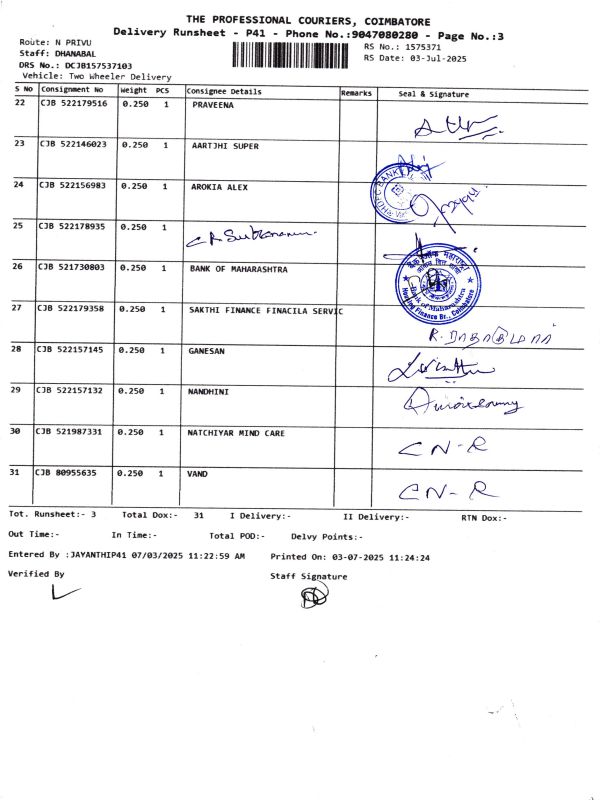 THE PROFESSIONAL COURIERS, COIMBATORE
Delivery Runsheet - P41 - Phone No.:9047080280 - Page No.:3
Route: N PRIVU
RS No.: 1575371
Staff: DHANABAL
RS Date: 03-Jul-2025
DRS No.: DCJB157537103
Vehicle: Two Wheeler Delivery
S No Consignment No Weight PCS Consignee Details Remarks Seal & Signature
22 CJB 522179516 0.250 1 PRAVEENA
23 CJB 522146023 0.250 1 AARTJHI SUPER
24 CJB 522156983 0.250 1 AROKIA ALEX
25 CJB 522178935 0.250 1
26 CJB 521730803 0.250 1 BANK OF MAHARASHTRA
Bank of Maharashtra
Housing Finance Br., Coimbatore
27 CJB 522179358 0.250 1 SAKTHI FINANCE FINACILA SERVIC
28 CJB 522157145 0.250 1 GANESAN
29 CJB 522157132 0.250 1 NANDHINI
30 CJB 521987331 0.250 1 NATCHIYAR MIND CARE CN-R
31 CJB 80955635 0.250 1 VAND CN-R
Tot. Runsheet:- 3 Total Dox:- 31 I Delivery:- II Delivery:- RTN Dox:-
Out Time:- In Time:- Total POD:- Delvy Points:-
Entered By :JAYANTHIP41 07/03/2025 11:22:59 AM Printed On: 03-07-2025 11:24:24
Verified By Staff Signature